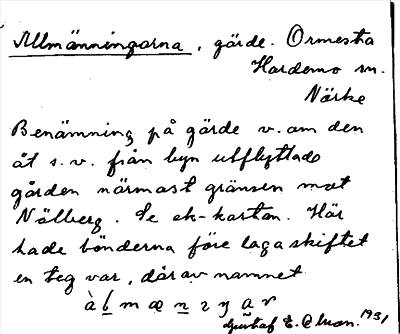 Allmänningarna, gärde. Ormesta
Hardemo sn.
Närke
Benämning på gärde v. om den
åt s.v. från byn utflyttade
gården närmast gränsen mot
Nälberg. Se ek-kartan. Här
hade bönderna före laga skiftet
en teg var, därav namnet
Gustaf E. 1931